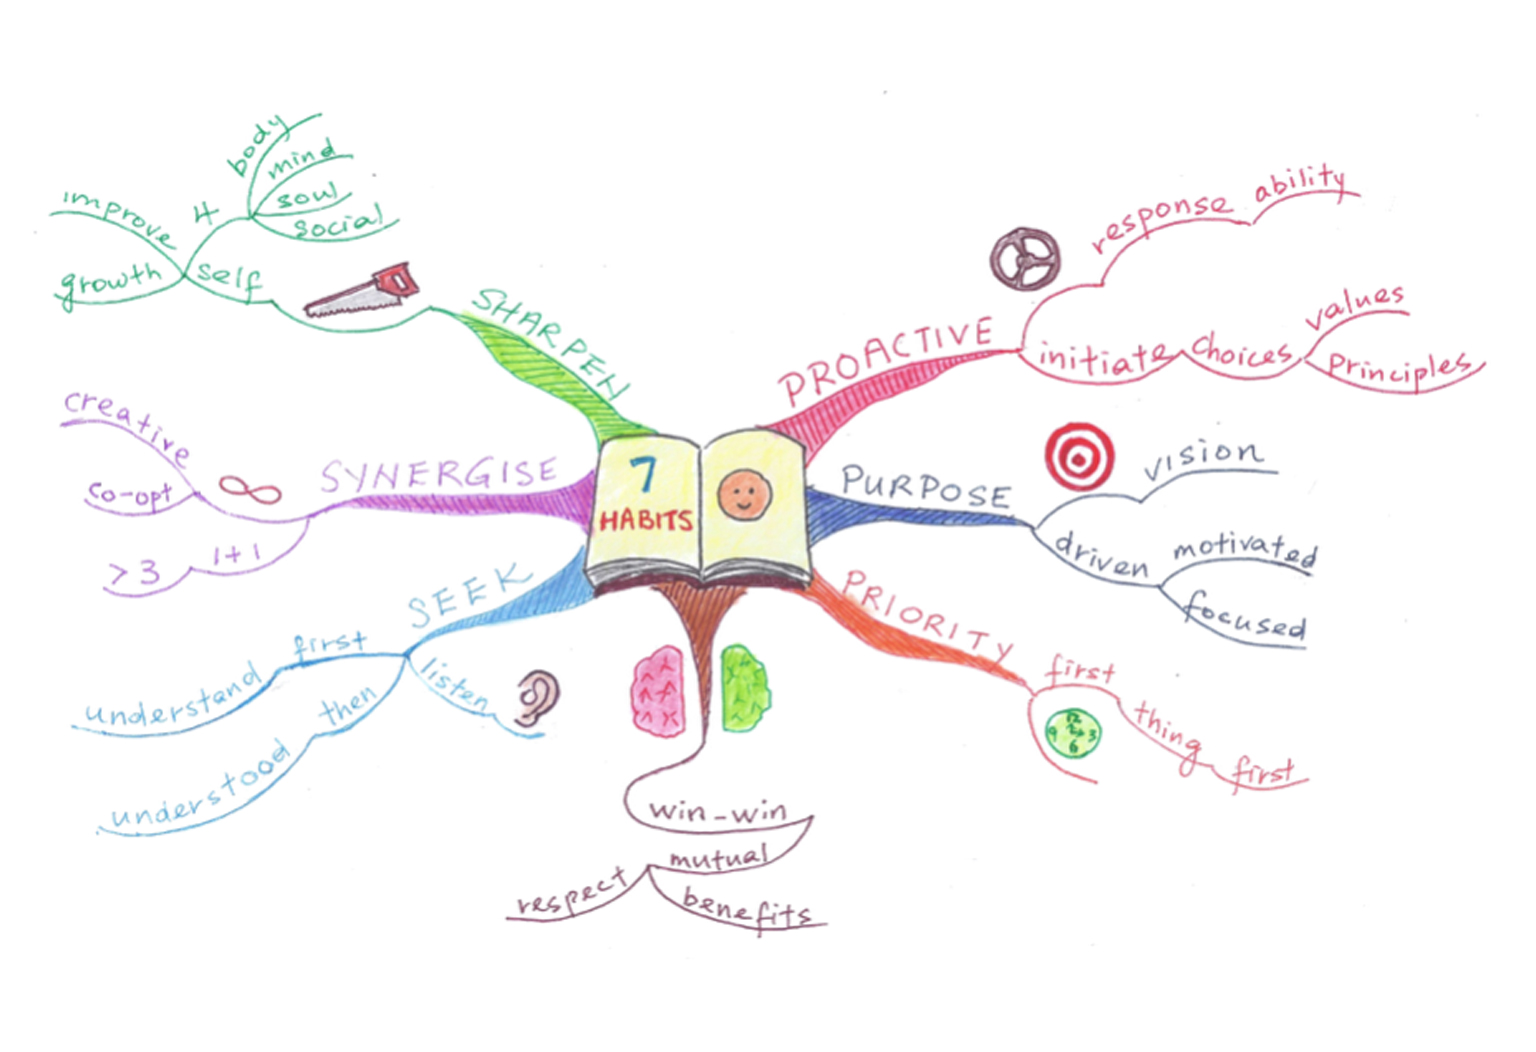 7
HABITS
PROACTIVE
response ability
initiate choices
values
Principles
PURPOSE
vision
driven
motivated
focused
PRIORITY
first
thing
first
12
3
6
9
win-win
mutual
respect
benefits
SEEK
first
understand
then
understood
listen
SYNERGISE
creative
co-opt
1+1
>3
SHARPEN
self
improve
growth
4
body
mind
soul
social